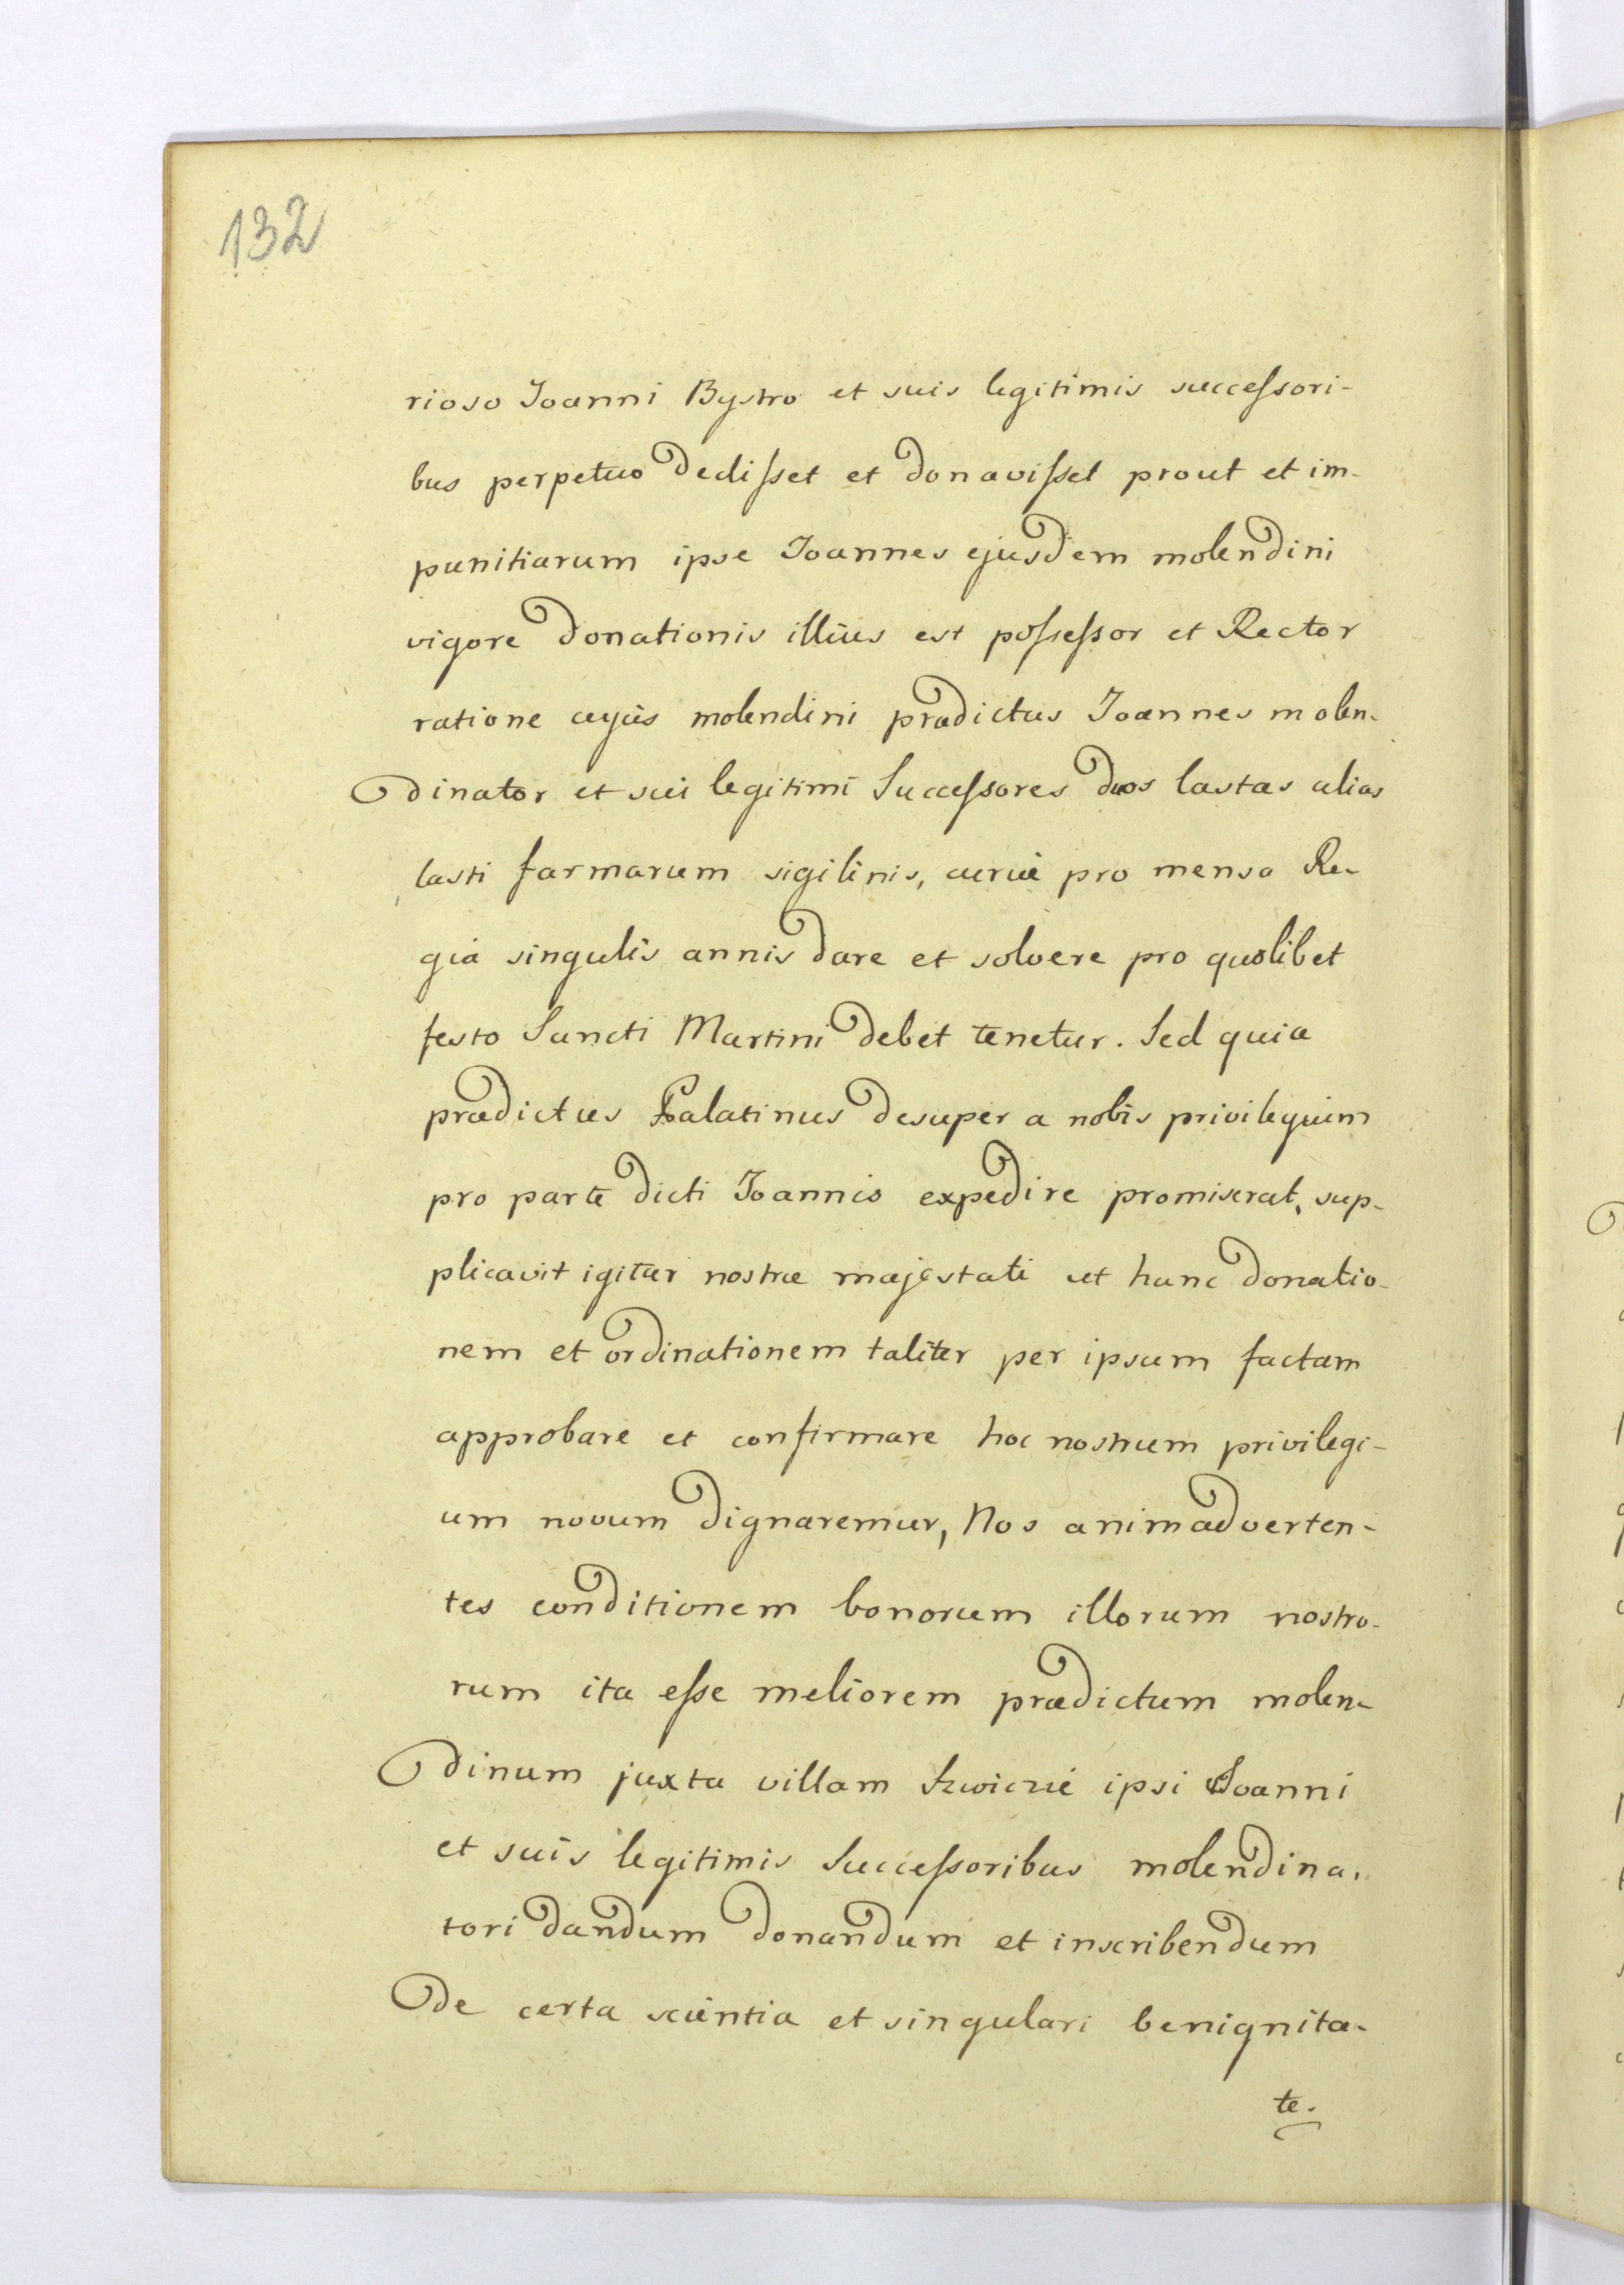 132
rioso Joanni Bystro et suis legitimis successori-
bus perpetuo dedisset et donavisset prout et im-
punitiarum ipse Joannes ejusdem molendini
vigore donationis illius est possessor et Rector
ratione cujus molendini prædictus Joannes molen-
dinator et sui legitimi Successores duos lastas alias
lasti farmarum sigilinis, pro mensa Re-
gia singulis annis dare et solvere pro quolibet
festo Sancti Martini debet tenetur. Sed quia
prædictus Palatinus desuper a nobis privilegium
pro parte dicti Joannis expedire promiserat, sup-
plicavit igitur nostræ majestati ut hanc donatio-
nem et ordinationem taliter per ipsum factam
approbare et confirmare hoc nostrum privilegi-
um novum dignaremur, Nos animadverten-
tes conditionem bonorum illorum nostro-
rum ita esse meliorem prædictum molen-
dinum juxta villam ipsi Joanni
et suis legitimis Successoribus molendina-
tori dandum donandum et inscribendum
de certa scientia et singulari benignita-
te.